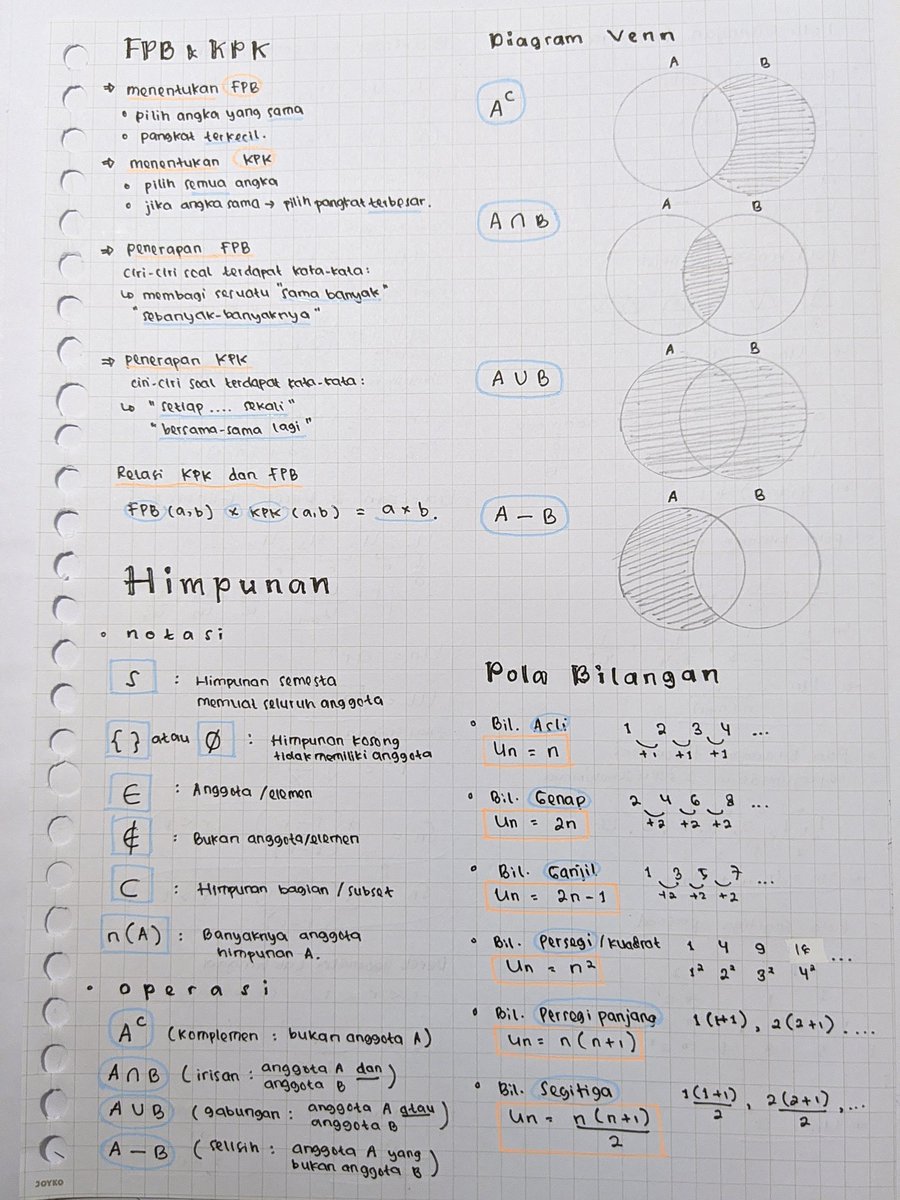 FPB & KPK
⇒ menentukan FPB
• pilih angka yang sama
• pangkat terkecil.
⇒ menentukan KPK
• pilih semua angka
• jika angka sama → pilih pangkat terbesar.
⇒ penerapan FPB
ciri-ciri soal terdapat kata-kata:
↳ membagi sesuatu "sama banyak"
"sebanyak-banyaknya"
⇒ penerapan KPK
ciri-ciri soal terdapat kata-kata:
↳ "setiap .... sekali"
"bersama-sama lagi"
Relasi KPK dan FPB
FPB (a,b) x KPK (a,b) = a x b.
Himpunan
• notasi
S : Himpunan semesta
memuat seluruh anggota
{ } atau ∅ : Himpunan kosong
tidak memiliki anggota
∈ : Anggota/elemen
∉ : Bukan anggota/elemen
⊂ : Himpunan bagian/subset
n(A) : Banyaknya anggota
himpunan A.
• operasi
Aᶜ (komplemen : bukan anggota A)
A ∩ B (irisan : anggota A dan
anggota B)
A ∪ B (gabungan : anggota A atau
anggota B)
A – B (selisih : anggota A yang
bukan anggota B)
Diagram Venn
Aᶜ A B
A ∩ B A B
A ∪ B A B
A – B A B
Pola Bilangan
• Bil. Asli 1 2 3 4 ...
Un = n +1 +1 +1
• Bil. Genap 2 4 6 8 ...
Un = 2n +2 +2 +2
• Bil. Ganjil 1 3 5 7 ...
Un = 2n-1 +2 +2 +2
• Bil. Persegi/kuadrat 1 4 9 16
Un = n² 1² 2² 3² 4² ...
• Bil. Persegi panjang 1(1+1), 2(2+1) ....
Un = n(n+1)
• Bil. Segitiga 1(1+1)/2, 2(2+1)/2, ...
Un = n(n+1)/2
JOYKO